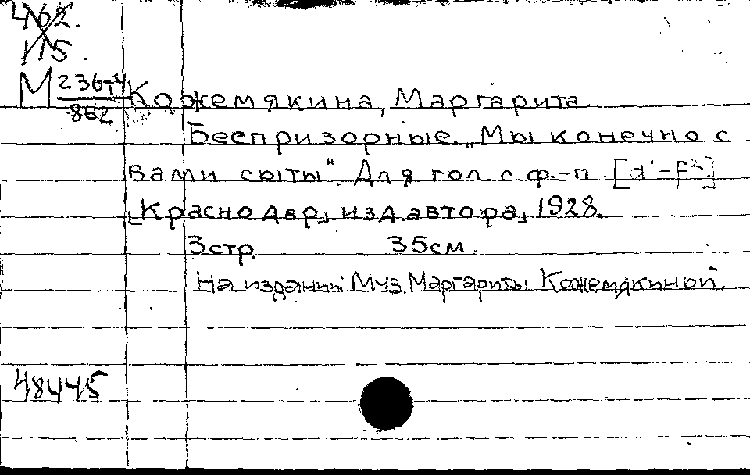 462.
115.
М 236т4
862
Кожемякина, Маргарита
Беспризорные. „Мы конечно с
вами сыты". Для гол с ф.-п [d'-f²]
[Краснодар], изд. автора, 1928.
3 стр. 35 см.
На издании: Муз. Маргариты Кожемякиной.
48445